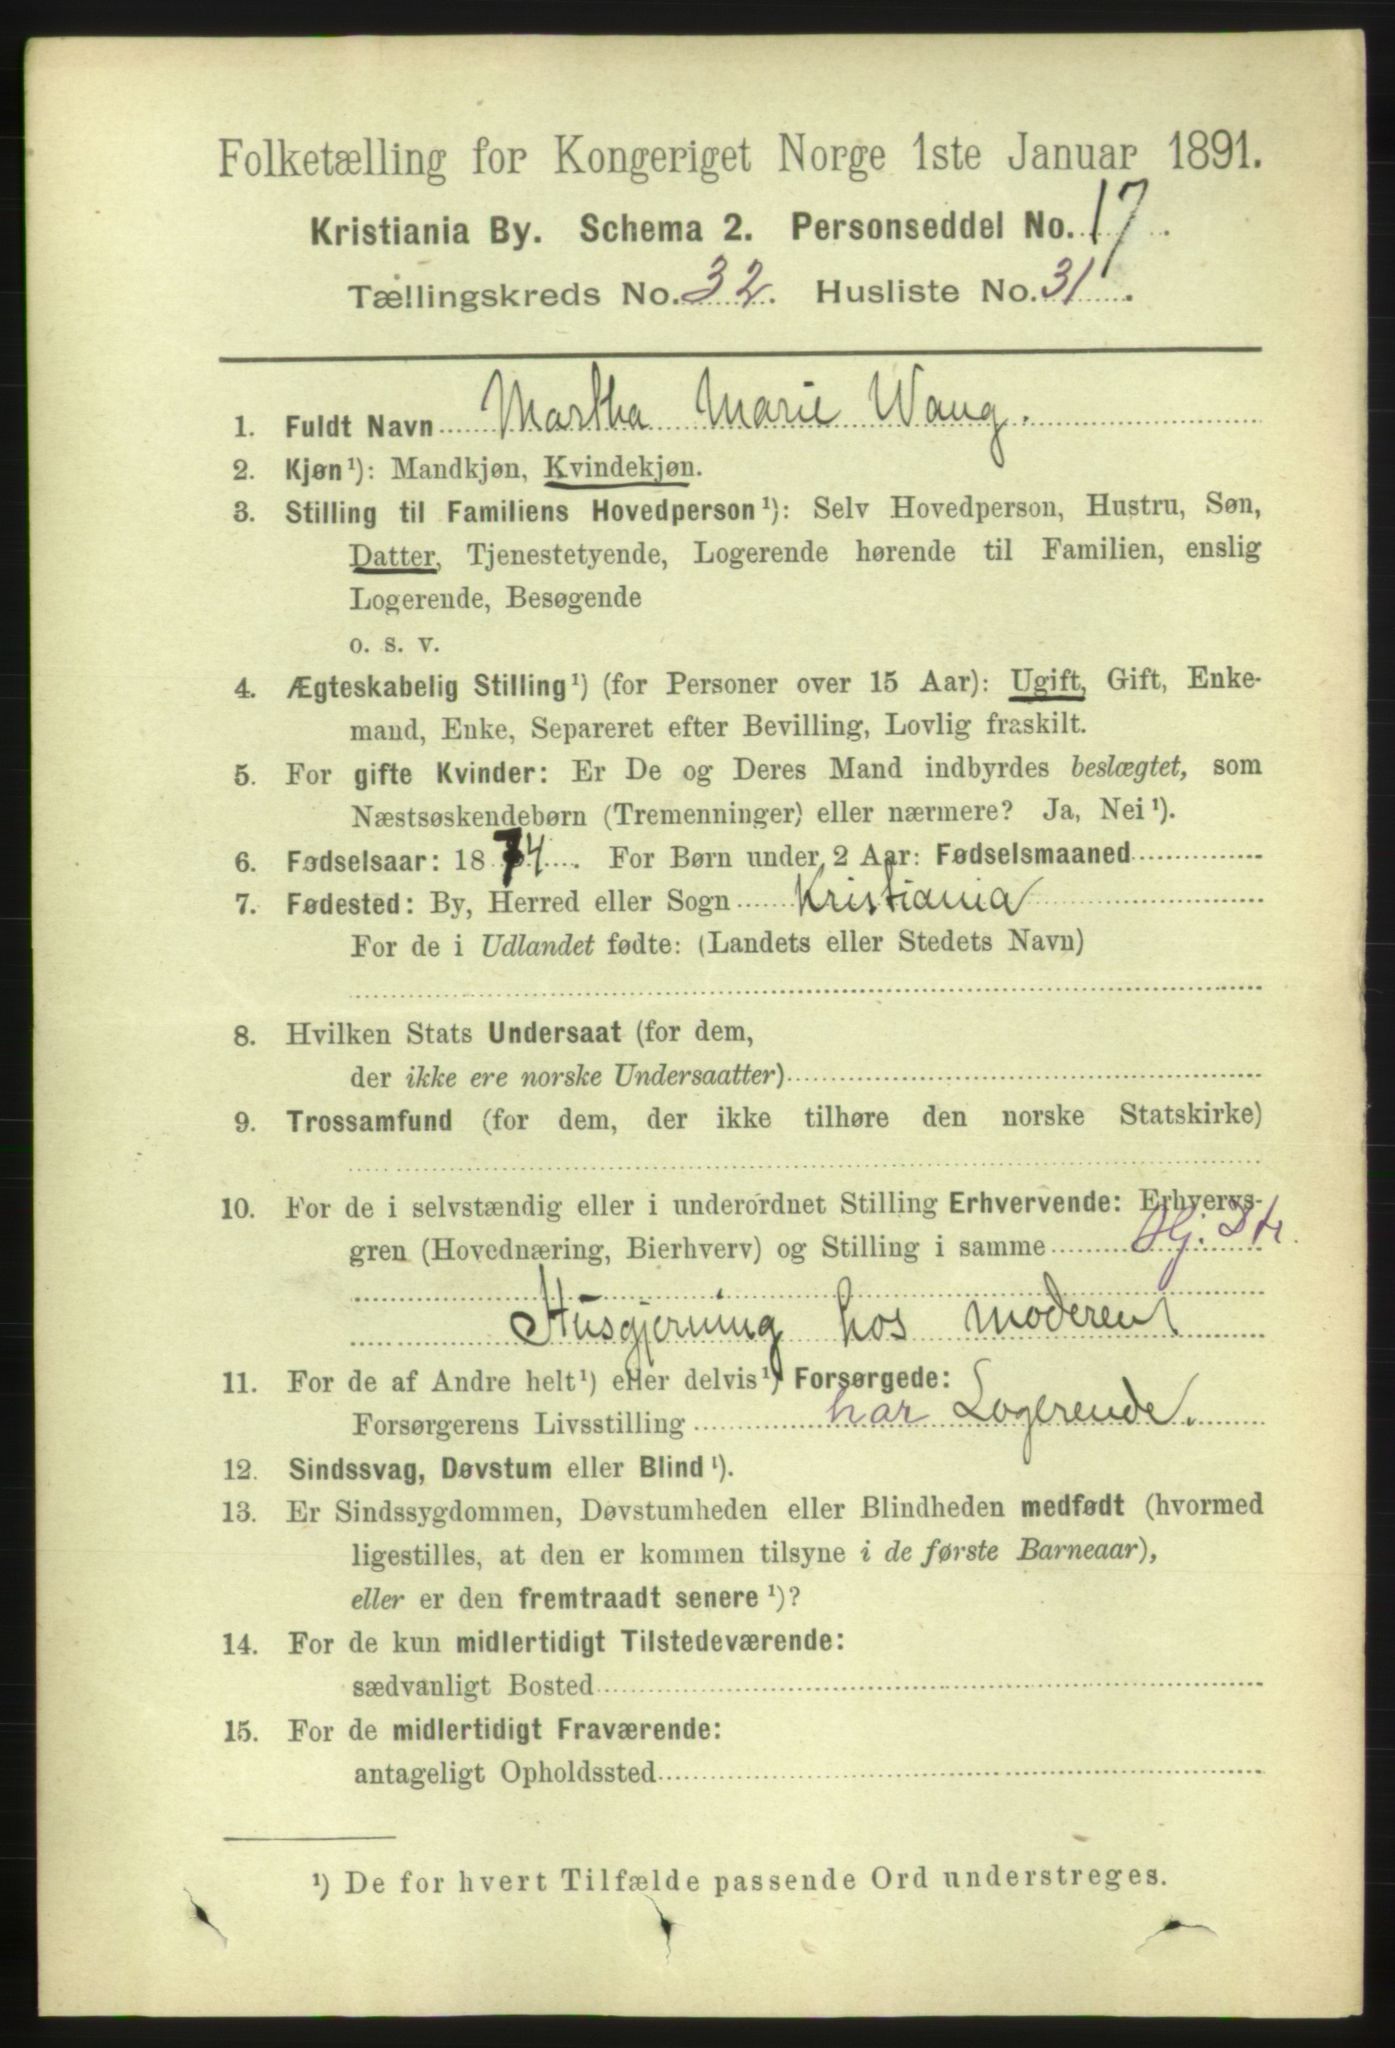 Folketælling for Kongeriget Norge 1ste Januar 1891.
Kristiania By. Schema 2. Personseddel No. 17.
Tællingskreds No. 32. Husliste No. 31.
1. Fuldt Navn Martha Marie Wang.
2. Kjøn¹): Mandkjøn, Kvindekjøn.
3. Stilling til Familiens Hovedperson¹): Selv Hovedperson, Hustru, Søn,
Datter, Tjenestetyende, Logerende hørende til Familien, enslig
Logerende, Besøgende
o. s. v.
4. Ægteskabelig Stilling¹) (for Personer over 15 Aar): Ugift, Gift, Enke-
mand, Enke, Separeret efter Bevilling, Lovlig fraskilt.
5. For gifte Kvinder: Er De og Deres Mand indbyrdes beslægtet, som
Næstsøskendebørn (Tremenninger) eller nærmere? Ja, Nei¹).
6. Fødselsaar: 1874. For Børn under 2 Aar: Fødselsmaaned
7. Fødested: By, Herred eller Sogn Kristiania
For de i Udlandet fødte: (Landets eller Stedets Navn)
8. Hvilken Stats Undersaat (for dem,
der ikke ere norske Undersaatter)
9. Trossamfund (for dem, der ikke tilhøre den norske Statskirke)
10. For de i selvstændig eller i underordnet Stilling Erhvervende: Erhvervs-
gren (Hovednæring, Bierhverv) og Stilling i samme
Husgjerning hos moderen
11. For de af Andre helt¹) eller delvis¹) Forsørgede:
Forsørgerens Livsstilling har Logerende.
12. Sindssvag, Døvstum eller Blind¹).
13. Er Sindssygdommen, Døvstumheden eller Blindheden medfødt (hvormed
ligestilles, at den er kommen tilsyne i de første Barneaar),
eller er den fremtraadt senere¹)?
14. For de kun midlertidigt Tilstedeværende:
sædvanligt Bosted
15. For de midlertidigt Fraværende:
antageligt Opholdssted
¹) De for hvert Tilfælde passende Ord understreges.